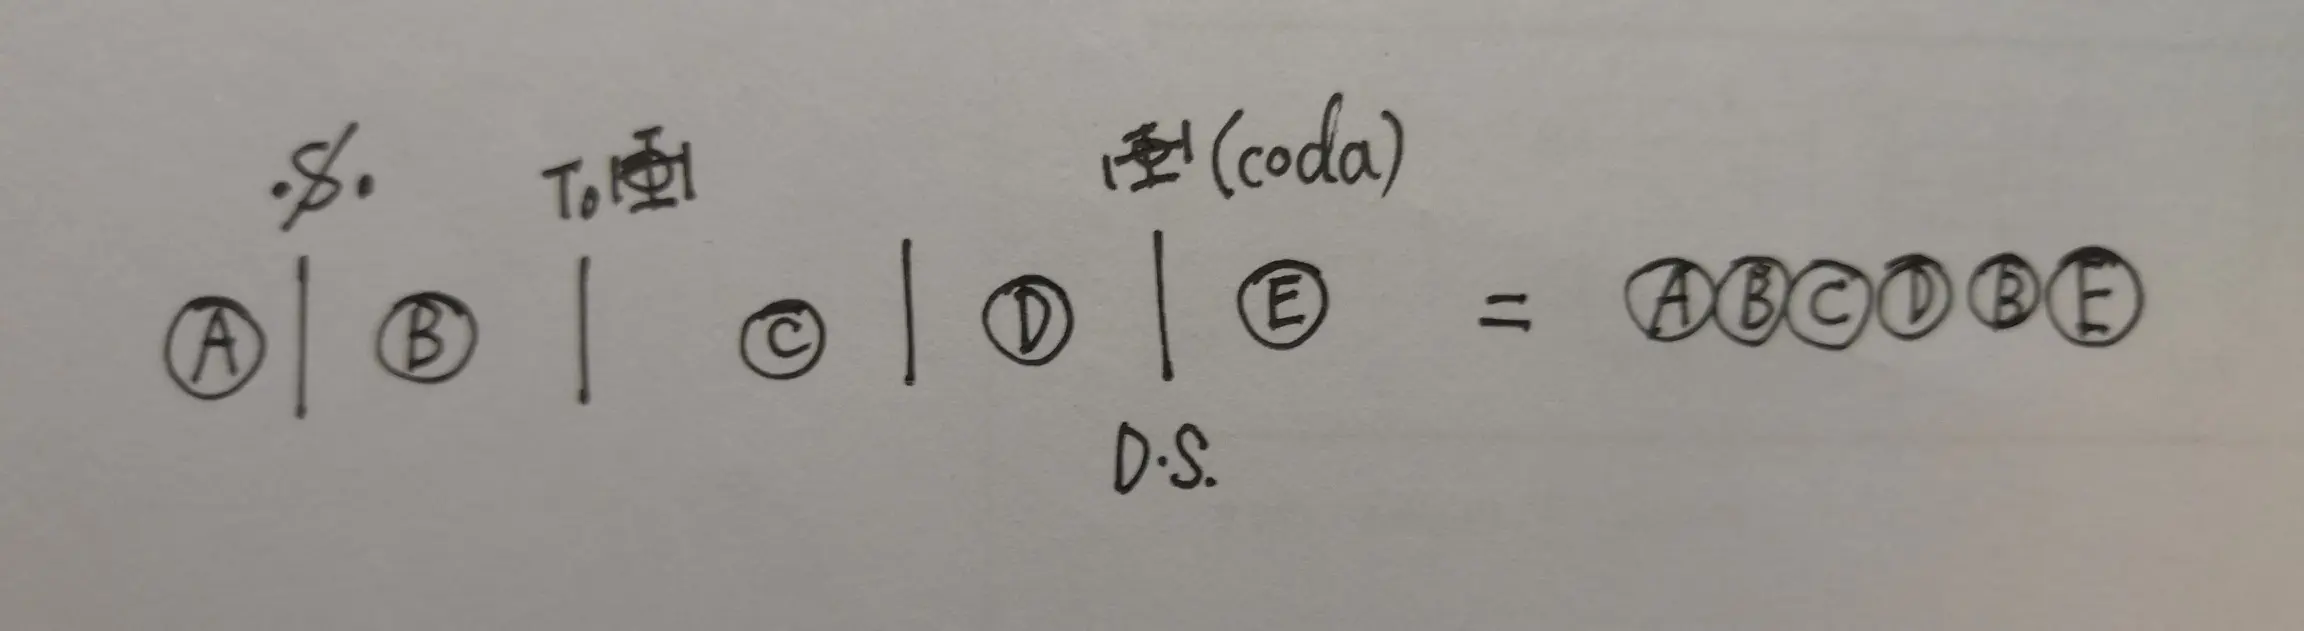 .𝄋. To 𝄌 𝄌 (coda)
Ⓐ | Ⓑ | Ⓒ | Ⓓ | Ⓔ = ⒶⒷⒸⒹⒷⒺ
D.S.